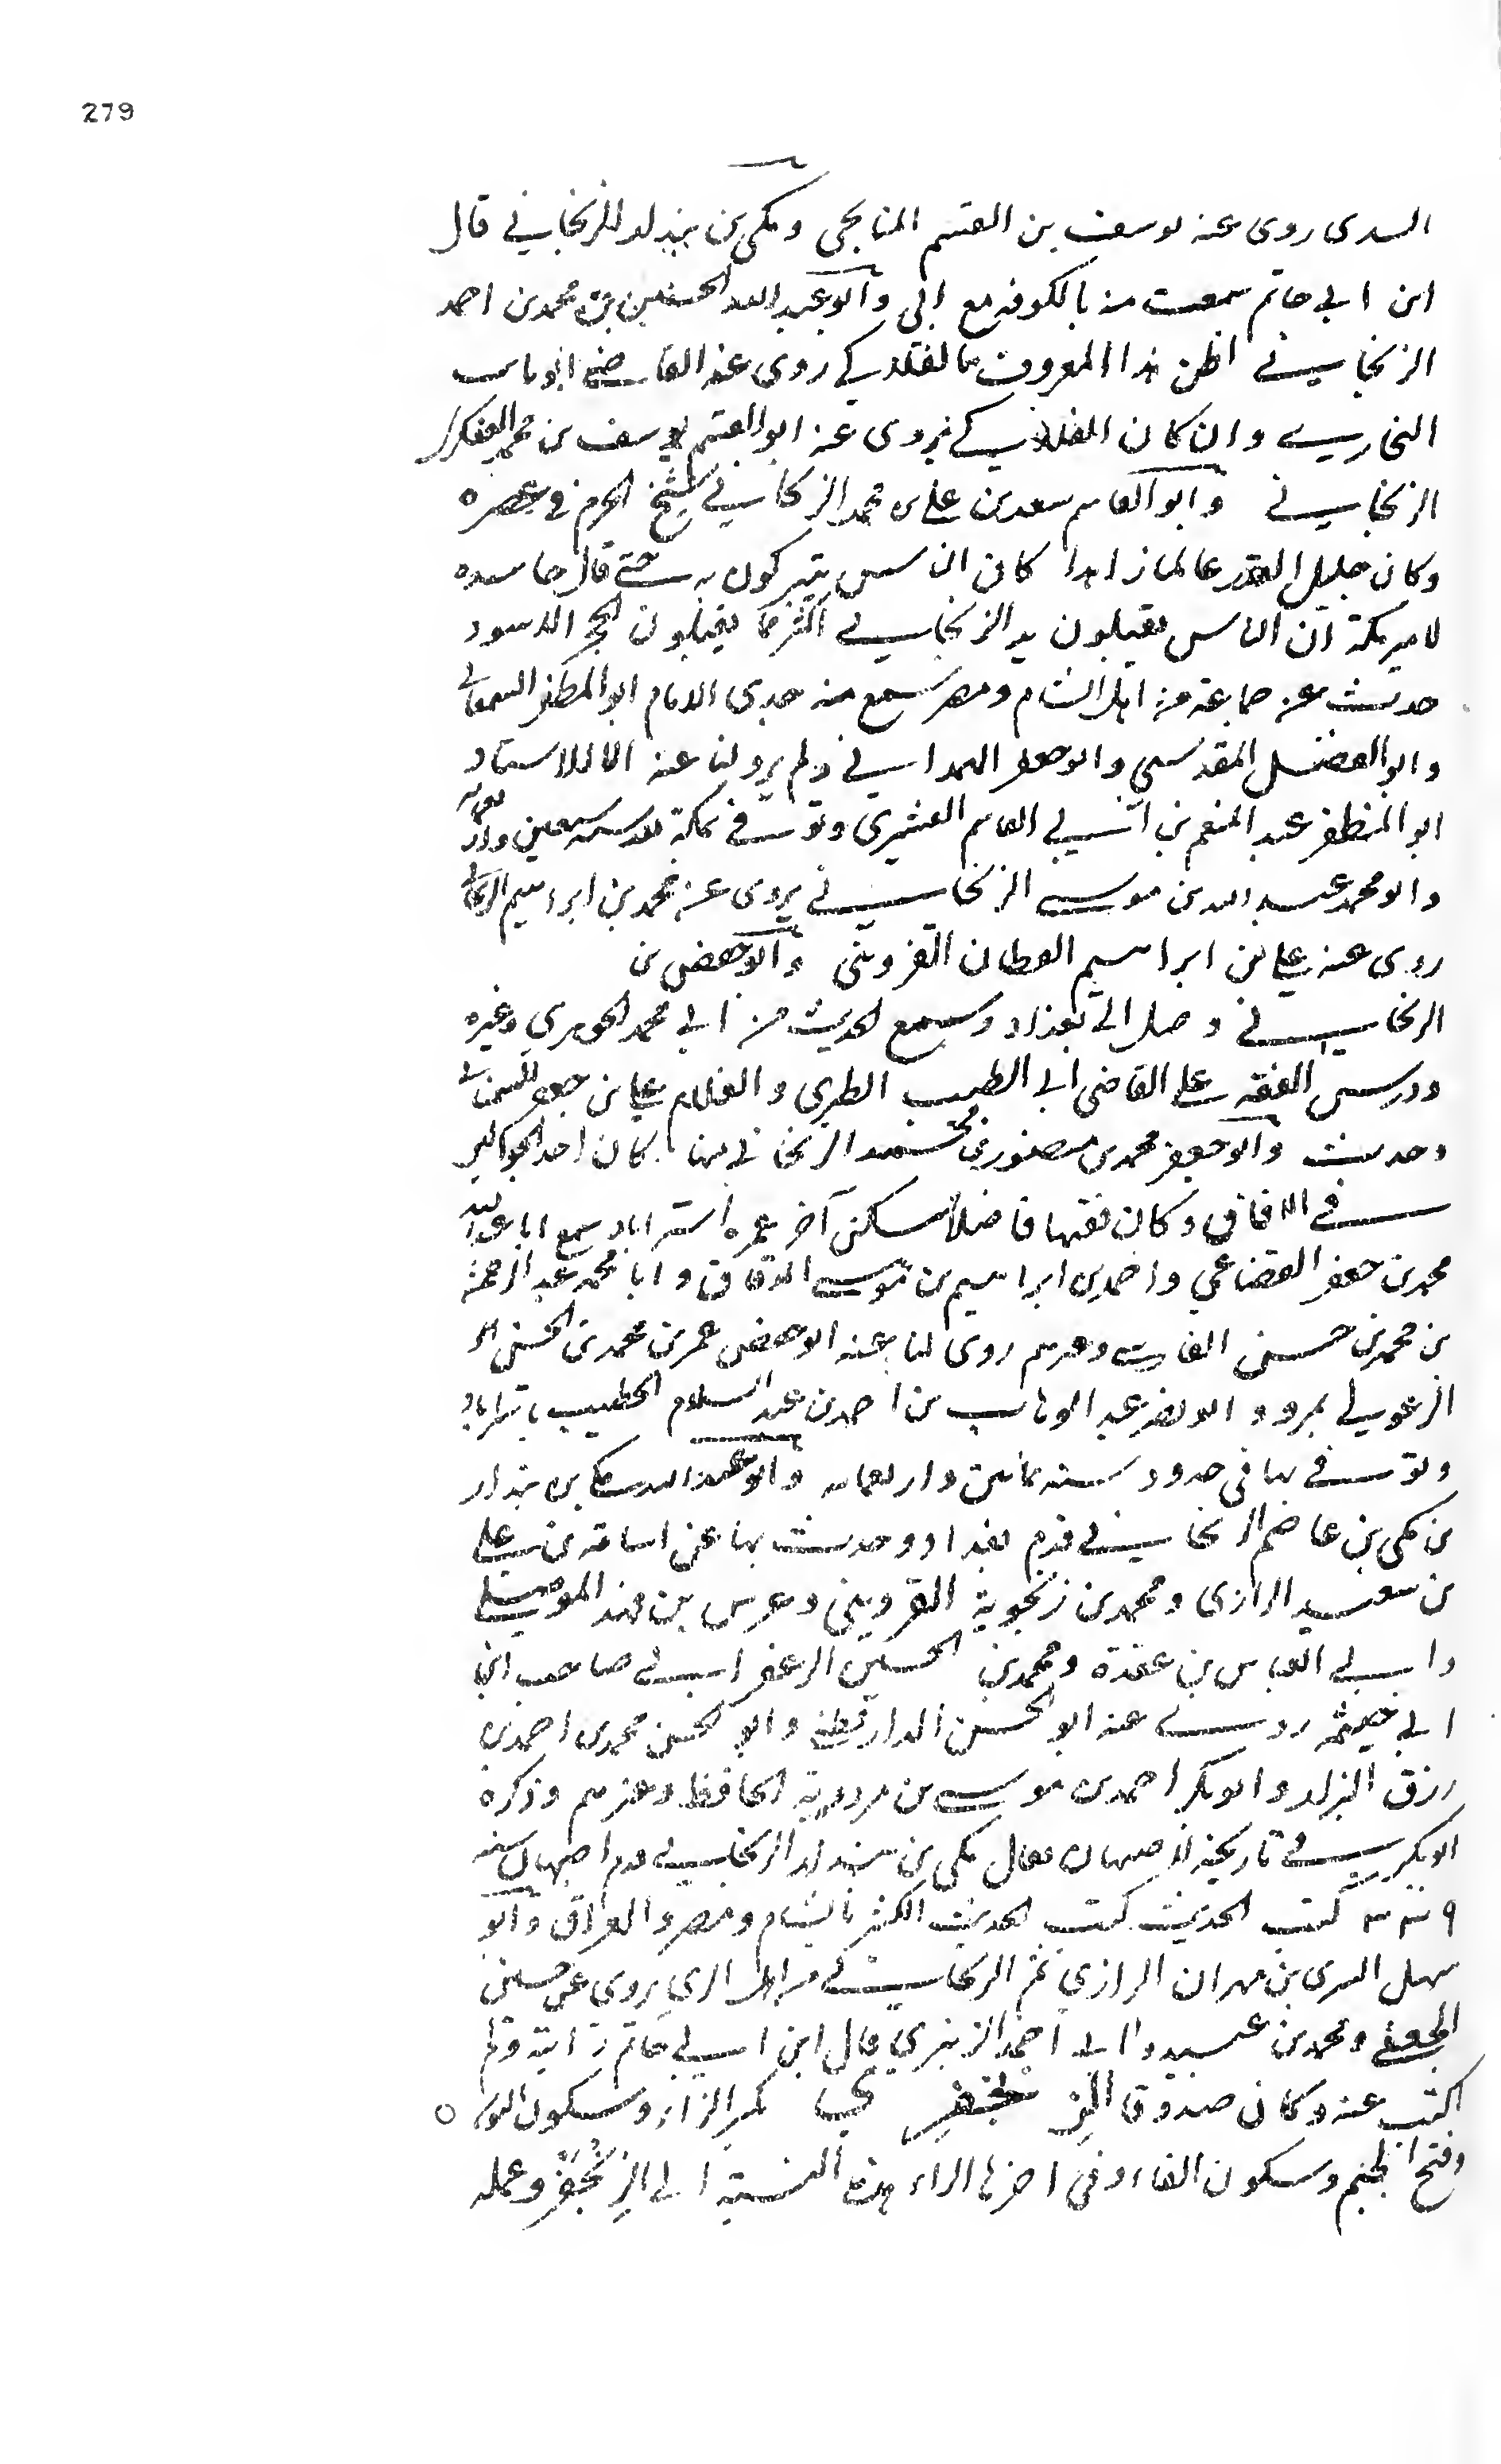 279
السدى روى عنه يوسف بن القسم الميانجى ومكى بن بندار الزنجانى قال
ابن ابى حاتم سمعت منه بالكوفه مع ابى وابو عبد الله الحسين بن محمد بن احمد
الزنجانى اظن هذا المعروف بالفلاكى روى عنه القاضى ابو
وان كان الفلاكى يروى عنه ابو القسم يوسف بن محمد
الزنجانى وابو القاسم سعد بن على بن محمد الزنجانى شيخ الحرم فى عصره
وكان جليل القدر عالما زاهدا كان الناس يتبركون به حتى قال حاسده
لامير مكة ان الناس يقبلون يد الزنجانى اكثر مما يقبلون الحجر الاسود
حديث عن جماعة من اهل الشام ومصر سمع منه جدى الامام ابو المظفر السمعانى
وابو الفضل المقدسى وابو جعفر الهمدانى ولم يرو لنا عنه الا الاستاد
ابو المظفر عبد المنعم بن ابى القاسم القشيرى وتوفى بمكة بعد سنه سبعين واربعمائه
وابو محمد عبد الله بن موسى الزنجانى يروى عن محمد بن ابراهيم الزنجانى
روى عنه على بن ابراهيم القطان القزوينى وابو حفص بن
الزنجانى وصل الى بغداد وسمع الحديث من ابى محمد الجوهرى وغيره
ودرس الفقه على القاضى ابى الطيب الطبرى والكلام على ابى جعفر السمنانى
وحديث وابو جعفر محمد بن منصور بن محمد الزنجانى بها كان احد الجوالين
فى الافاق وكان فقيها فاضلا سكن آخر عمره استراباد سمع ابا عبد الله
محمد بن جعفر القضاعى واحمد بن ابراهيم بن موسى الدقاق وابا محمد عبد الرحمن
بن محمد بن حسين الفارسى وغيرهم روى لنا عنه ابو حفص عمر بن محمد بن الحسن
الزغولى بمرو وابو نصر عبد الوهاب بن احمد بن عبد السلام الخطيب باستراباد
وتوفى بها فى حدود سنه ثمانين واربعمائه وابو عبد الله مكى بن بندار
بن مكى بن عاصم الزنجانى قدم بغداد وحديث بها عن اسامة بن على
بن سعيد الرازى ومحمد بن زنجوية القزوينى وعرس بن فهد الموصلى
وابى العباس بن عقدة ومحمد بن الحسين الزعفرانى صاحب ابن
ابى خيثمه روى عنه ابو الحسن الدارقطنى وابو الحسن محمد بن احمد بن
رزق البزاز وابو بكر احمد بن موسى بن مردوية الحافظ وغيرهم وذكره
ابو بكر فى تاريخه لاصبهان فقال مكى بن بندار الزنجانى قدم اصبهان سنه
٣٣٩ كتب الحديث كتب الحديث الكثير بالشام ومصر والعراق وابو
سهل السرى بن مهران الرازى ثم الزنجانى من اهل الرى يروى عن حسين
الجعفى ومحمد بن عبيد وابى احمد الزبيرى قال ابن ابى حاتم رايته ولم
اكتب عنه وكان صدوقا الزنجفرى بكسر الزاء وسكون النون
وفتح الجيم وسكون الفاء وفى اخرها الراء هذه النسبة الى الزنجفر وعمله